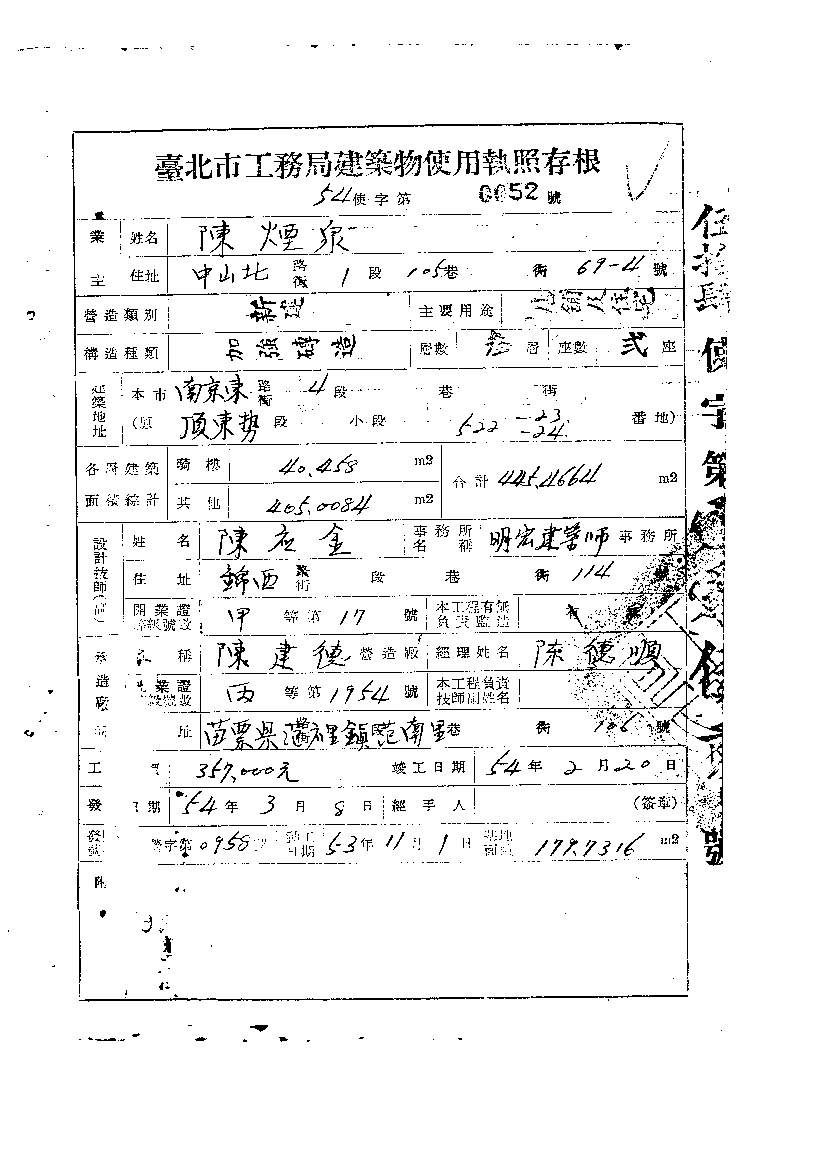 臺北市工務局建築物使用執照存根
54使字第 0052 號
業主 姓名 陳煙泉
住址 中山北路 1 段 105巷 街 69-4 號
營造類別 新建 主要用途 店舖及住宅
構造種類 加強磚造 層數 層 座數 弍 座
建築地址 本市 南京東路街 4 段 巷 街
(原 頂東勢 段 小段 522 -23 -24 番地)
各層建築面積綜計 騎樓 40.458 m2 合計 445.4664 m2
其他 405.0084 m2
設計技師 姓名 陳应金 事務所名稱 明宏建築師 事務所
住址 錦西 街 段 巷 街 114 號
開業證 甲 等第 17 號 本工程有無負責監造 有
承造廠 稱 陳建德 營造廠 經理姓名 陳德順
業證 丙 等第 1954 號 本工程負責技師副姓名
址 苗栗県 鎮 南里 巷 街 106 號
工 357,000元 竣工日期 54 年 2 月 20 日
發 期 54 年 3 月 8 日 經手人 (簽章)
字第 0958 動工日期 53 年 11 月 1 日 基地面積 179.7316 m2
附
伍拾肆使字第 號